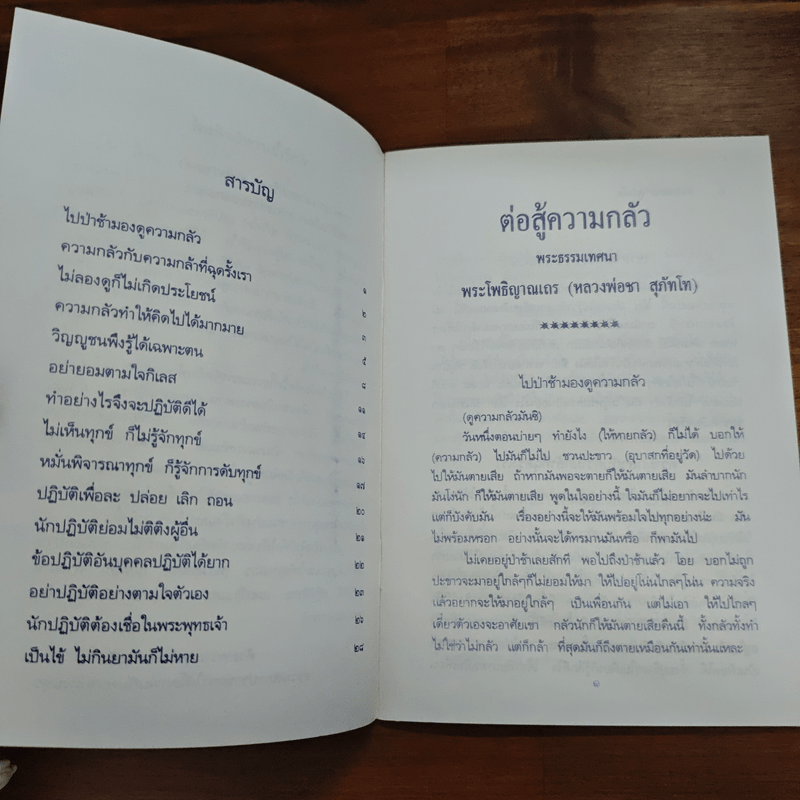 สารบัญ
ไปป่าช้ามองดูความกลัว ๑
ความกลัวกับความกล้าที่ฉุดรั้งเรา ๒
ไม่ลองดูก็ไม่เกิดประโยชน์ ๓
ความกลัวทำให้คิดไปได้มากมาย ๕
วิญญูชนพึงรู้ได้เฉพาะตน ๘
อย่ายอมตามใจกิเลส ๑๑
ทำอย่างไรจึงจะปฏิบัติดีได้ ๑๔
ไม่เห็นทุกข์ ก็ไม่รู้จักทุกข์ ๑๖
หมั่นพิจารณาทุกข์ ก็รู้จักการดับทุกข์ ๑๗
ปฏิบัติเพื่อละ ปล่อย เลิก ถอน ๒๐
นักปฏิบัติย่อมไม่ติติงผู้อื่น ๒๑
ข้อปฏิบัติอันบุคคลปฏิบัติได้ยาก ๒๒
อย่าปฏิบัติอย่างตามใจตัวเอง ๒๓
นักปฏิบัติต้องเชื่อในพระพุทธเจ้า ๒๖
เป็นไข้ ไม่กินยามันก็ไม่หาย ๒๘
ต่อสู้ความกลัว
พระธรรมเทศนา
พระโพธิญาณเถร (หลวงพ่อชา สุภัทโท)
********
ไปป่าช้ามองดูความกลัว
(ดูความกลัวมันซิ)
วันหนึ่งตอนบ่ายๆ ทำยังไง (ให้หายกลัว) ก็ไม่ได้ บอกให้
(ความกลัว) ไปมันก็ไม่ไป ชวนปะขาว (อุบาสกที่อยู่วัด) ไปด้วย
ไปให้มันตายเสีย ถ้าหากมันพอจะตายก็ให้มันตายเสีย มันลำบากนัก
มันโง่นัก ก็ให้มันตายเสีย พูดในใจอย่างนี้ ใจมันก็ไม่อยากจะไปเท่าไร
แต่ก็บังคับมัน เรื่องอย่างนี้จะให้มันพร้อมใจไปทุกอย่างน่ะ มัน
ไม่พร้อมหรอก อย่างนั้นจะได้ทรมานมันหรือ ก็พามันไป
ไม่เคยอยู่ป่าช้าเลยสักที พอไปถึงป่าช้าแล้ว โอย บอกไม่ถูก
ปะขาวจะมาอยู่ใกล้ๆก็ไม่ยอมให้มา ให้ไปอยู่โน่นไกลๆโน่น ความจริง
แล้วอยากจะให้มาอยู่ใกล้ๆ เป็นเพื่อนกัน แต่ไม่เอา ให้ไปไกลๆ
เดี๋ยวตัวเองจะอาศัยเขา กลัวนักก็ให้มันตายเสียคืนนี้ ทั้งกลัวทั้งทำ
ไม่ใช่ว่าไม่กลัว แต่ก็กล้า ที่สุดมันก็ถึงตายเหมือนกันเท่านั้นแหละ
๑